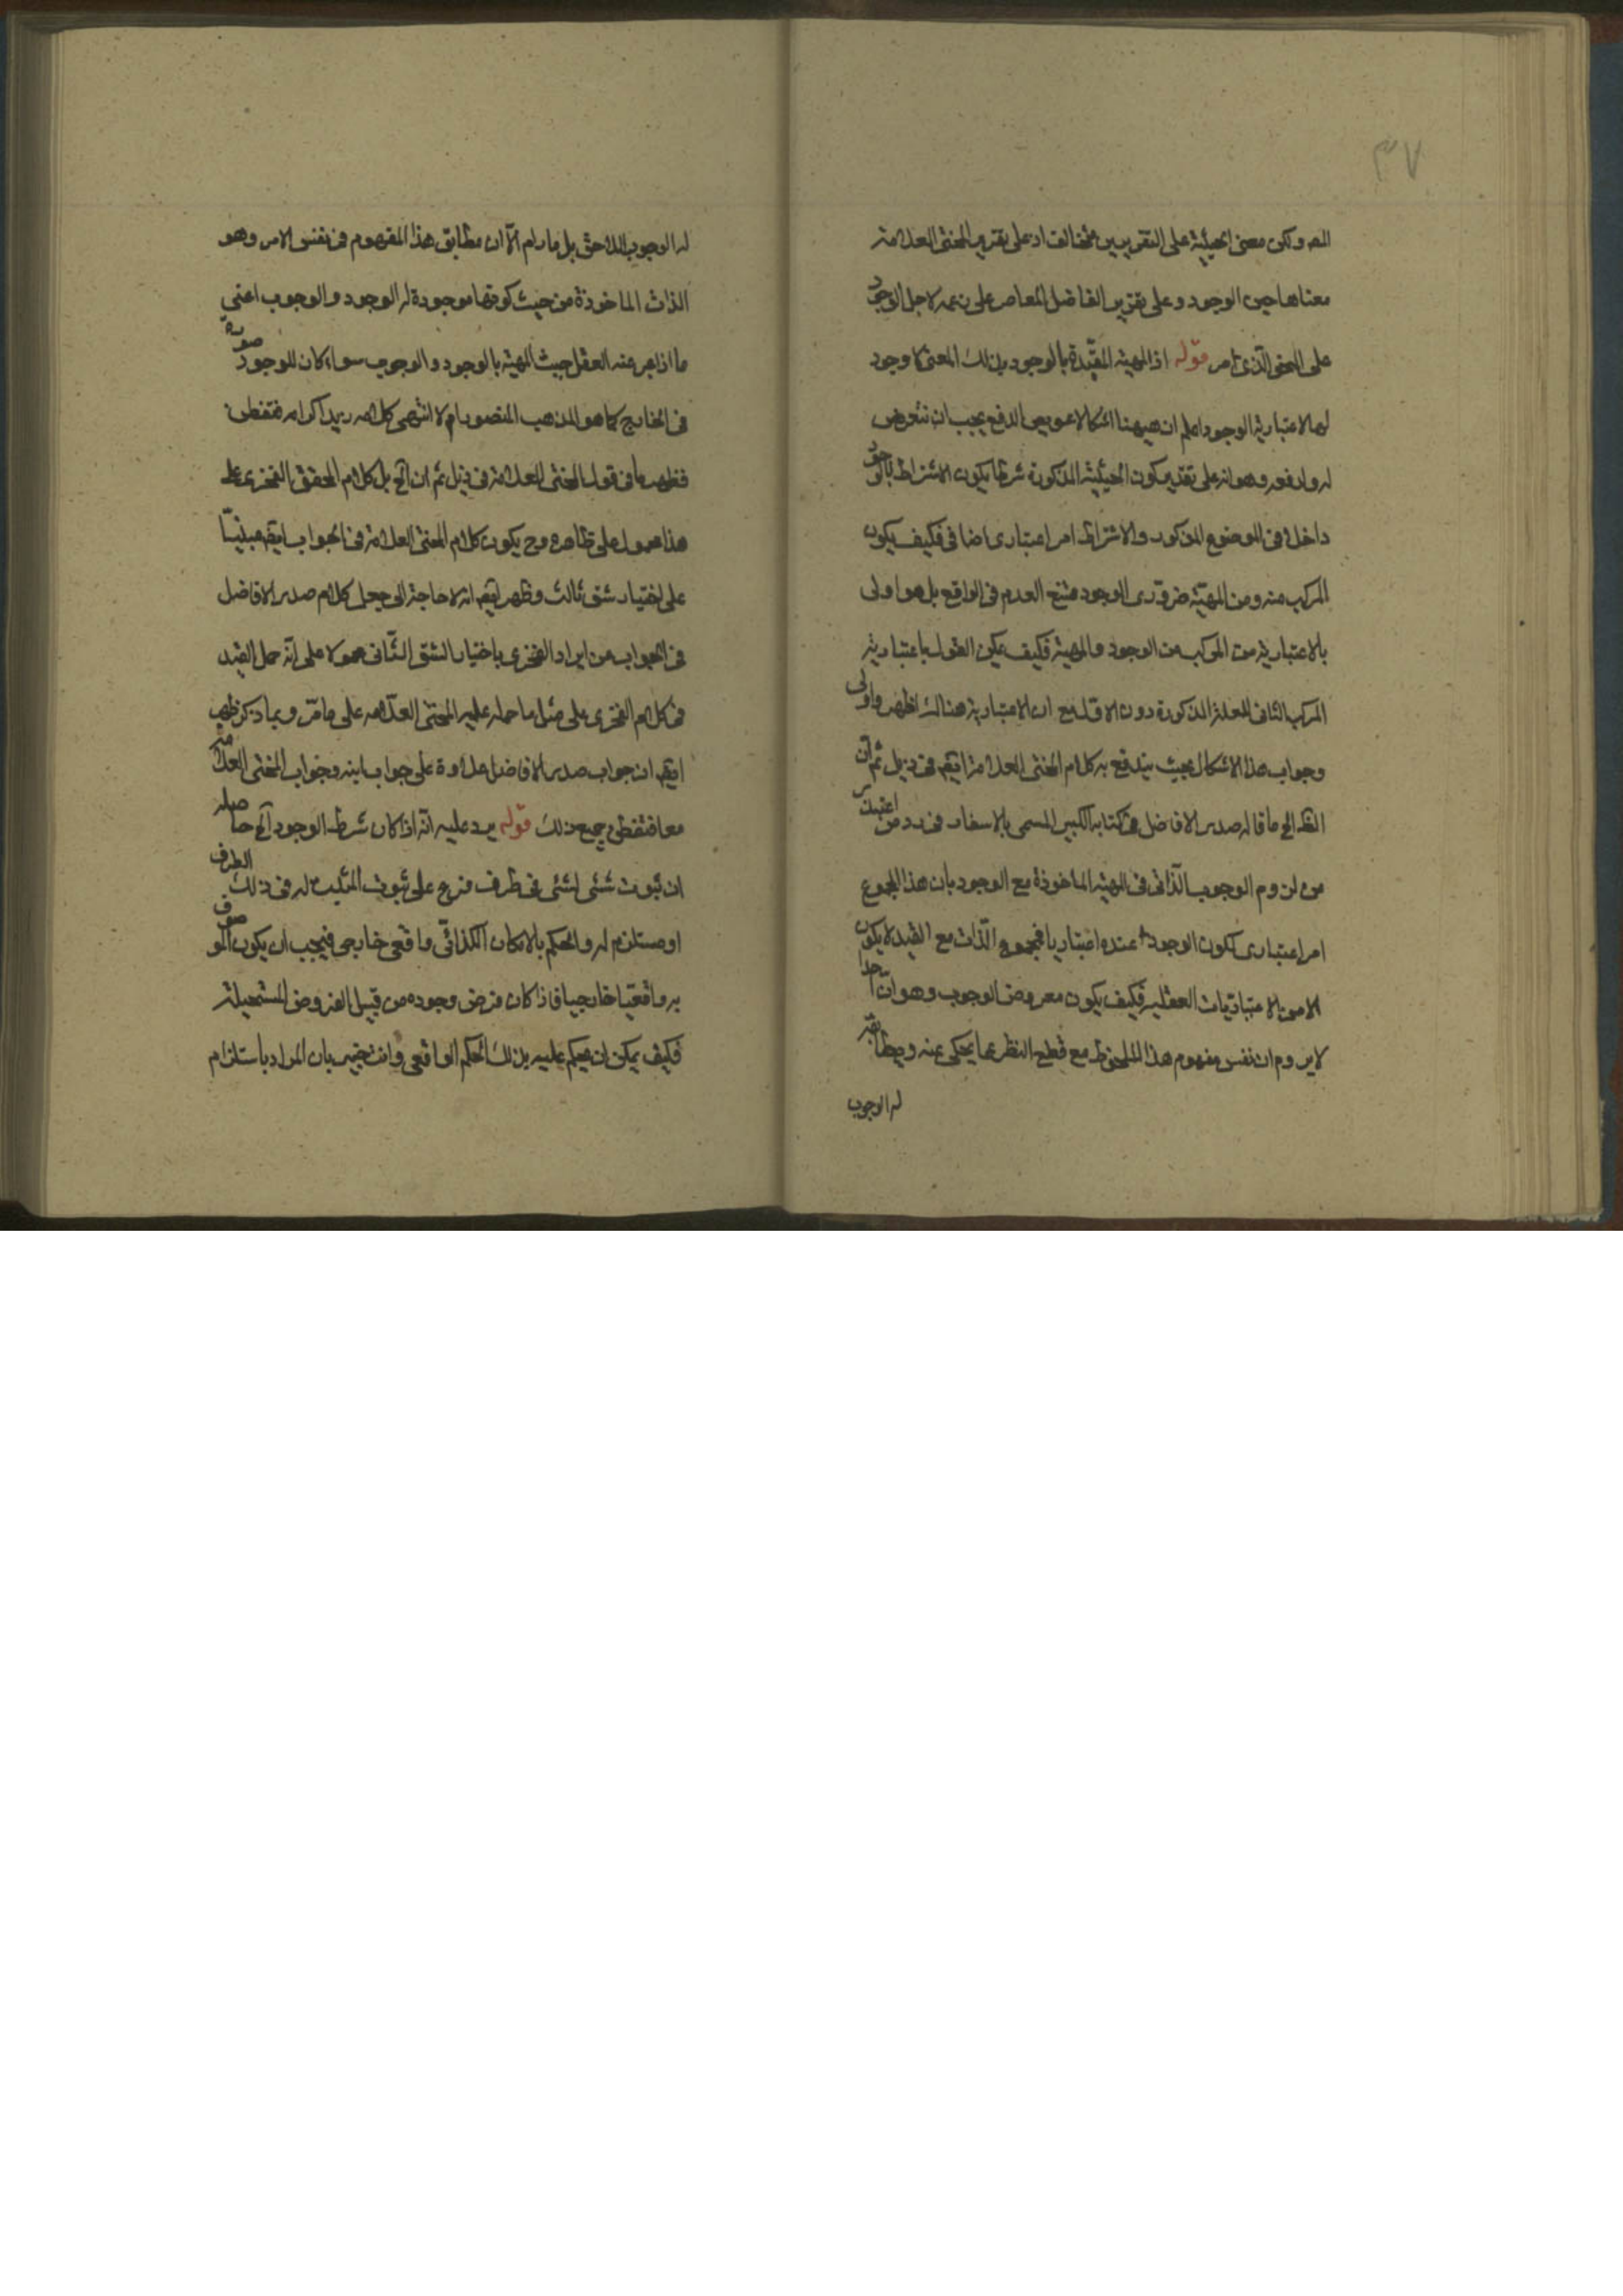 ٣٧
المص ولكن معنى الحيثية على التقريرين مختالف اد على تقرير المحشى العلامة
معناها حين الوجود وعلى تقرير الفاضل المعاصر على زعمه لاجل الوجود
على المعنى الذى مر قوله اذ المهية المقيدة بالوجود بذلك المعنى لا وجود
لها لاعتبارية الوجود اعلم ان هيهنا اشكالا عويص الدفع يجب ان نتعرض
له ولدفعه وهو انه على تقدير كون الحيثية المذكورة شرطا يكون الاشتراط بالوجود
داخلا فى الموضوع المذكور والاشتراط امر اعتبارى اضافى فكيف يكون
المركب منه ومن المهية ضرورى الوجود ممتنع العدم فى الواقع بل هو اولى
بالاعتبارية من المركب من الوجود والمهية فكيف يمكن القول باعتبارية
المركب الثانى للعلة المذكورة دون الاول مع ان الاعتبارية هنالك اظهر واولى
وجواب هذا الاشكال بحيث يندفع به كلام المحشى العلامة ايضا فى ذيل ثم ان
الظ الخ ما قاله صدر الافاضل فى كتابه الكبير المسمى بالاسفار فى رد من اعتبرت
من لزوم الوجوب الذاتى فى المهية الماخوذة مع الوجود بان هذا المجموع
امر اعتبارى لكون الوجود عنده اعتباريا فمجموع الذات مع القيد لا يكون
الا من الاعتباريات العقلية فكيف يكون معروض الوجوب وهو ان احدا
لا يروم ان نفس مفهوم هذا الملحوظ مع قطع النظر عما يحكى عنه ويطابقه
له الوجوب
له الوجوب اللاحق بل ما رام الا ان مطابق هذا المفهوم فى نفس الامر وهو
الذات الماخوذة من حيث كونها موجودة له الوجود والوجوب اعنى
ما اذا عبر عنه العقل حيث المهية بالوجود والوجوب سواء كان للوجود صورة
فى الخارج كما هو المذهب المنصور ام لا انتهى كلامه زيد اكرامه فتفطن
فظهر ما فى قول المحشى العلامة فى ذيل ثم ان الخ بل كلام المحقق الفخرى على
هذا محمول على ظاهره وح يكون كلام المحشى العلامة فى الجواب ايضا مبنيا
على اختيار شق ثالث وظهر ايضا انه لا حاجة الى جعل كلام صدر الافاضل
فى الجواب من ايراد الفخرى باختيار الشق الثانى محمولا على انه حمل القيد
فى كلام الفخرى على مثل ما حمله عليه المحشى العلامه على ما مر وبما ذكر ظهر
ايضا ان جواب صدر الافاضل علاوة على جواب ابنه وجواب المحشى العلامة
معا فتفطن جميع ذلك قوله يرد عليه انه اذا كان شرط الوجود الخ حاصله
ان ثبوت شئى لشئى فى ظرف فرع على ثبوت المثبت له فى ذلك الظرف
او مستلزم له والحكم بالامكان الذاتى واقعى خارجى فيجب ان يكون الموصوف
به واقعيا خارجيا فاذا كان فرض وجوده من قبيل الفروض المستحيلة
فكيف يمكن ان يحكم عليه بذلك الحكم الواقعى وانت خبير بان المراد باستلزام